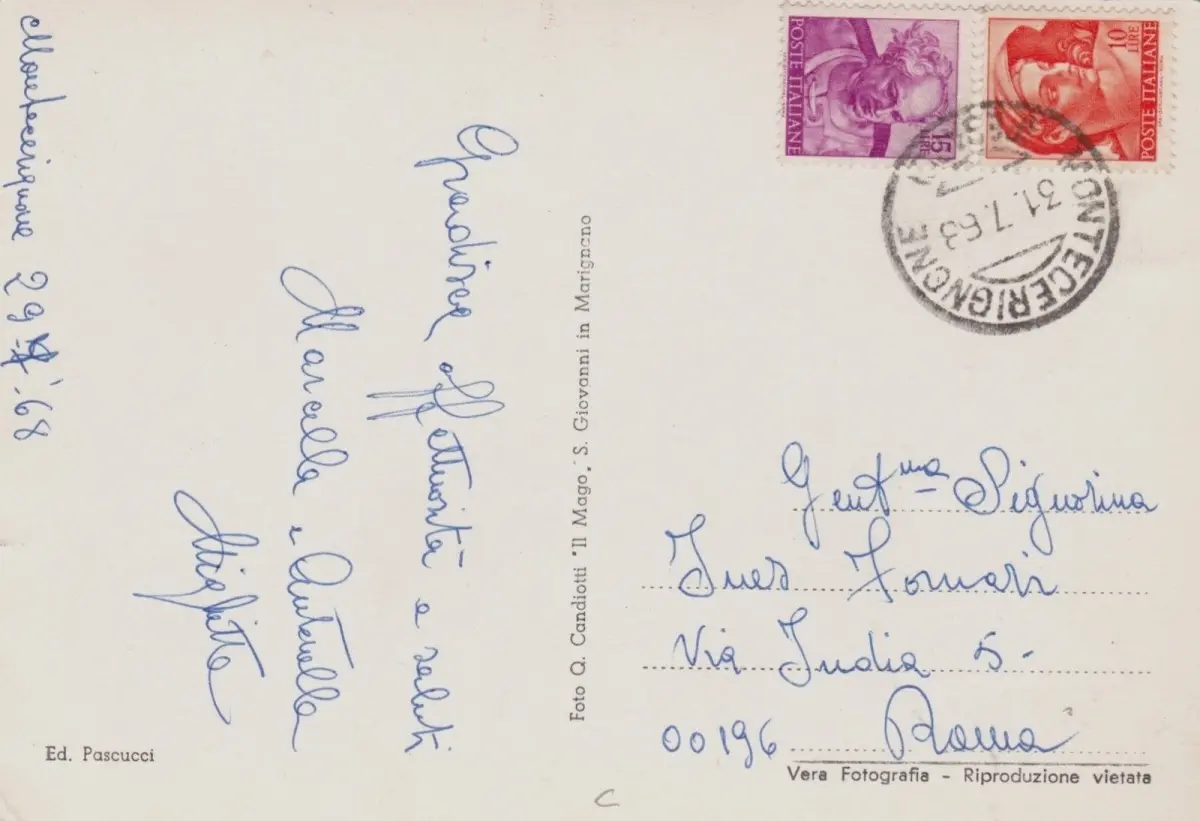 Montecerignone 29 '68
Gradisca affettuosità e saluti
Marcella e Antonella
Ed. Pascucci
Foto Q. Candiotti "Il Mago" S. Giovanni in Marignano
POSTE ITALIANE
15 LIRE
10 LIRE
POSTE ITALIANE
MONTECERIGNONE
31.7.68
Gent.ma Signorina
Ines Fornari
Via India 5-
00196 Roma
Vera Fotografia - Riproduzione vietata
C